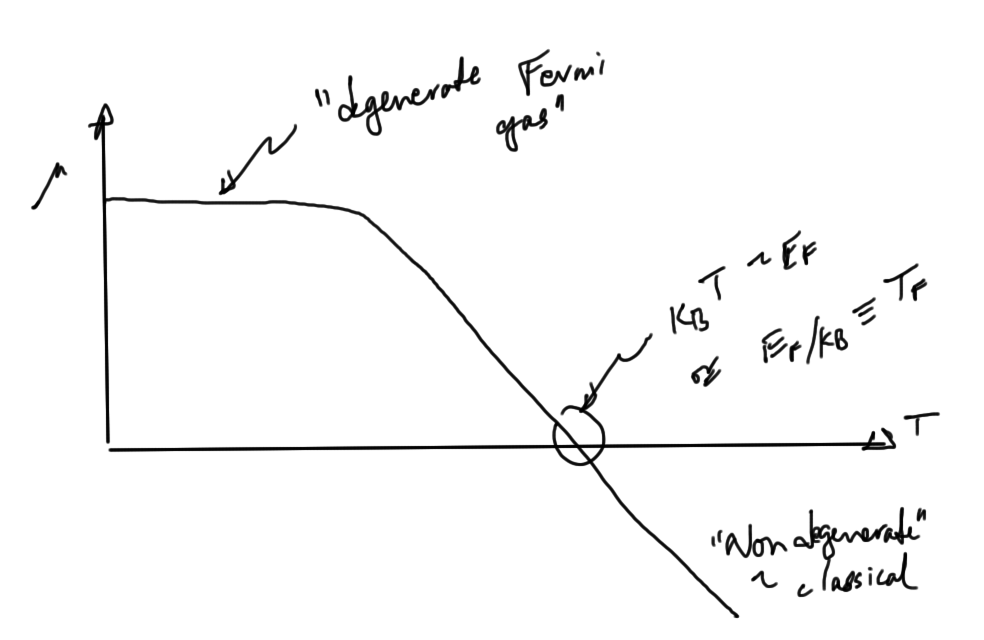 "degenerate Fermi
gas"
μ
KBT ~ EF
or EF/KB ≡ TF
T
"Non degenerate"
~ classical